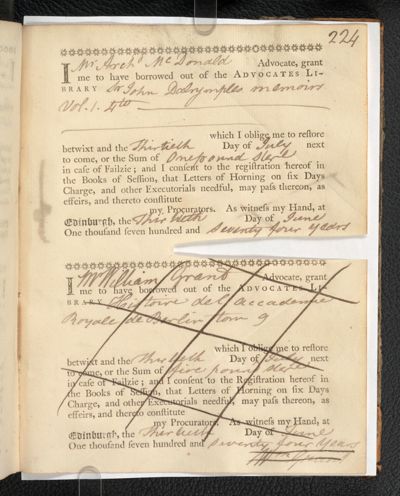 224
I Mr Archd McDonald Advocate, grant
me to have borrowed out of the ADVOCATES LI-
BRARY Sr John Dalrymples memoirs
Vol. 1. 4to
which I oblige me to reſtore
betwixt and the Thirtieth Day of July next
to come, or the Sum of One pound Sterl
in caſe of Failzie; and I conſent to the regiſtration hereof in
the Books of Seſſion, that Letters of Horning on ſix Days
Charge, and other Executorials needful, may paſs thereon, as
effeirs, and thereto conſtitute
my Procurators. As witneſs my Hand, at
Edinburgh, the Thirtieth Day of June
One thouſand ſeven hundred and Seventy four years
I Mr William Grant Advocate, grant
me to have borrowed out of the ADVOCATES LI-
BRARY Histoire de l'accademie
Royale de Berlin tom 9
which I oblige me to reſtore
betwixt and the Thirtieth Day of July next
to come, or the Sum of five pound Sterl
in caſe of Failzie; and I conſent to the Regiſtration hereof in
the Books of Seſſion, that Letters of Horning on ſix Days
Charge, and other Executorials needful, may paſs thereon, as
effeirs, and thereto conſtitute
my Procurators. As witneſs my Hand, at
Edinburgh, the Thirtieth Day of June
One thouſand ſeven hundred and Seventy four Years